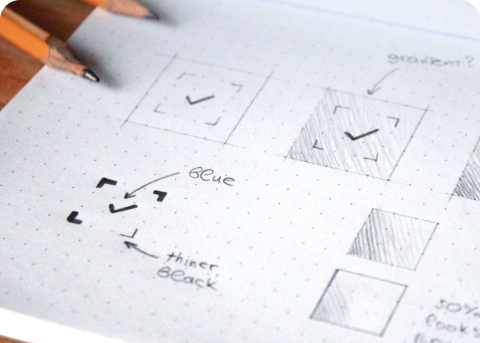 gradient?
Blue
thiner,
Black
50%
looks